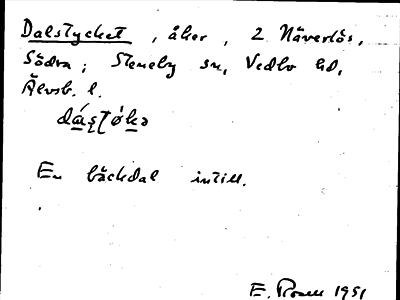 Dalstycket, åker, 2 Näverlös,
Södra; Steneby sn, Vedbo hd,
Älvsb. l.
En bäckdal intill.
E. Rosell 1951